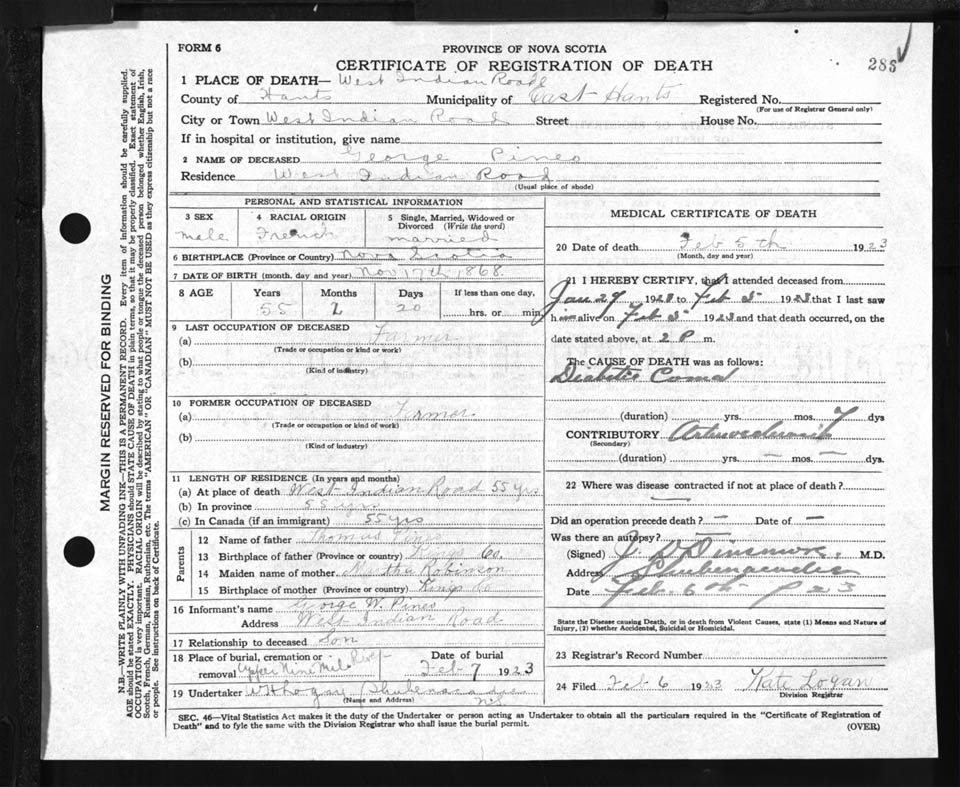 FORM 6
PROVINCE OF NOVA SCOTIA
CERTIFICATE OF REGISTRATION OF DEATH
285
1 PLACE OF DEATH— West Indian Road
County of Hants Municipality of East Hants Registered No.
(For use of Registrar General only)
City or Town West Indian Road Street House No.
If in hospital or institution, give name
2 NAME OF DECEASED George Pineo
Residence West Indian Road
(Usual place of abode)
PERSONAL AND STATISTICAL INFORMATION
3 SEX 4 RACIAL ORIGIN 5 Single, Married, Widowed or Divorced (Write the word)
male French married
6 BIRTHPLACE (Province or Country) Nova Scotia
7 DATE OF BIRTH (month, day and year) Nov 17th 1868
8 AGE Years Months Days If less than one day,
55 2 20 hrs. or min.
9 LAST OCCUPATION OF DECEASED
(a) Farmer
(Trade or occupation or kind or work)
(b)
(Kind of industry)
10 FORMER OCCUPATION OF DECEASED
(a) Farmer
(Trade or occupation or kind of work)
(b)
(Kind of industry)
11 LENGTH OF RESIDENCE (In years and months)
(a) At place of death West Indian Road 55 yrs
(b) In province 55 yrs
(c) In Canada (if an immigrant) 55 yrs
Parents
12 Name of father Thomas Pineo
13 Birthplace of father (Province or country) Kings Co.
14 Maiden name of mother Martha Robinson
15 Birthplace of mother (Province or country) Kings Co
16 Informant's name George W. Pineo
Address West Indian Road
17 Relationship to deceased Son
18 Place of burial, cremation or removal Upper Nine Mile River Date of burial Feb 7 1923
19 Undertaker Shubenacadie
(Name and Address) N.S.
MEDICAL CERTIFICATE OF DEATH
20 Date of death Feb 5th 1923
(Month, day and year)
21 I HEREBY CERTIFY, that I attended deceased from
Jan 29 1923 to Feb 5 1923 that I last saw
him alive on Feb 5 1923 and that death occurred, on the
date stated above, at 2 P m.
The CAUSE OF DEATH was as follows:
Diabetic Coma
(duration) yrs. mos. 7 dys
CONTRIBUTORY
(Secondary)
(duration) yrs. — mos. — dys.
22 Where was disease contracted if not at place of death?
—
Did an operation precede death? — Date of —
Was there an autopsy?
(Signed) Dinsmore. M.D.
Address Shubenacadie
Date Feb. 6th 1923
State the Disease causing Death, or in death from Violent Causes, state (1) Means and Nature of
Injury, (2) whether Accidental, Suicidal or Homicidal.
23 Registrar's Record Number
24 Filed Feb 6 1923 Kate Logan
Division Registrar
SEC. 46—Vital Statistics Act makes it the duty of the Undertaker or person acting as Undertaker to obtain all the particulars required in the "Certificate of Registration of
Death" and to fyle the same with the Division Registrar who shall issue the burial permit.
(OVER)
MARGIN RESERVED FOR BINDING
N.B.—WRITE PLAINLY WITH UNFADING INK—THIS IS A PERMANENT RECORD. Every item of information should be carefully supplied.
AGE should be stated EXACTLY. PHYSICIANS should STATE CAUSE OF DEATH in plain terms, so that it may be properly classified. Exact statement of
OCCUPATION is very important. RACIAL ORIGIN will be described by stating to what people or tongue the deceased person belonged whether English, Irish,
Scotch, French, German, Russian, Ruthenian, etc. The terms "AMERICAN" OR "CANADIAN" MUST NOT BE USED as they express citizenship but not a race
or people. See instructions on back of Certificate.